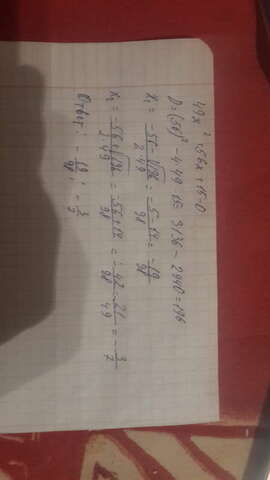 49x² + 56x + 15 = 0
D = (56)² - 4·49·15 = 3136 - 2940 = 196
x₁ = (-56 - √196)/(2·49) = (-5 - 14)/98 = -19/98
x₂ = (-56 + √196)/(2·49) = (-56 + 14)/98 = -42/98 = -21/49 = -3/7
Ответ: -19/98; -3/7